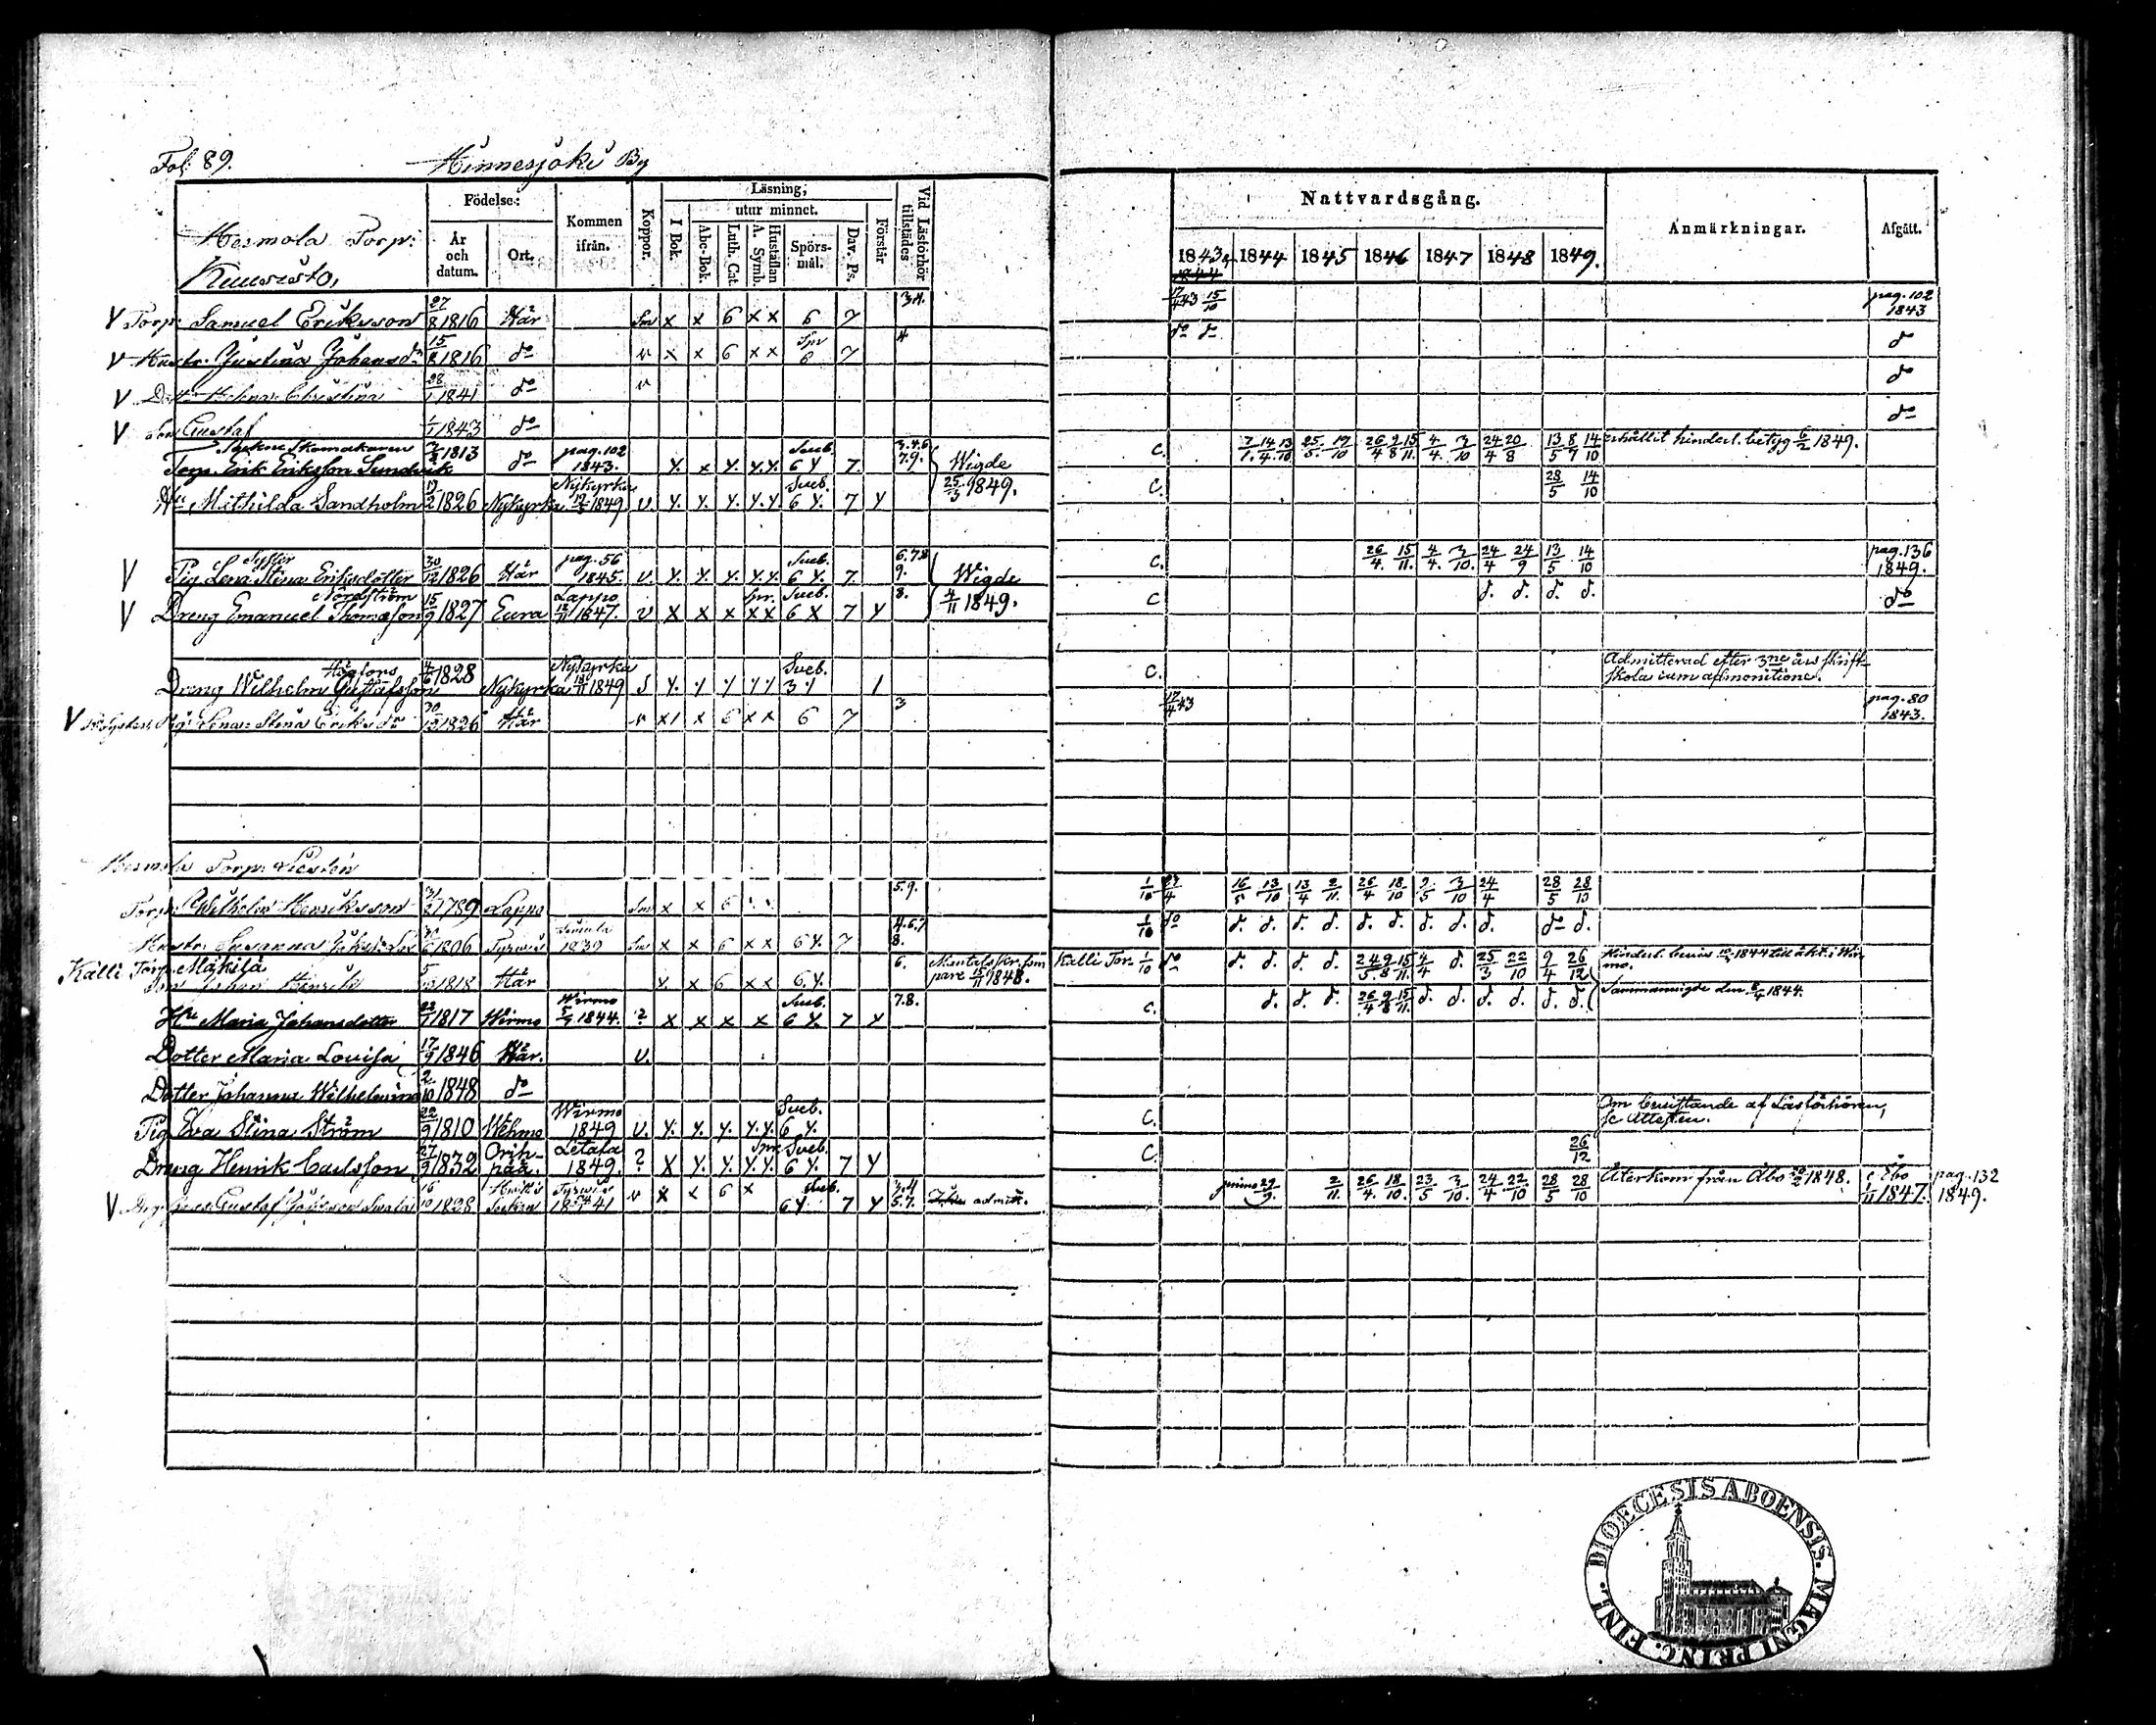 Fol. 89. Hinnesjoki By
Födelse: Läsning, Nattvardsgång.
Kommen ifrån. Koppor. I Bok. utur minnet. Förstår Vid Läsförhör tillstädes Anmärkningar. Afgått.
År och datum. Ort. Abc-Bok. Luth. Cat. A. Symb. Hustaflan Spörsmål. Dav. Ps. 1843 1844 1845 1846 1847 1848 1849.
Hermola Torp:
Torp: Samuel Eriksson 27/8 1816 Här Sm x x 6 x x 6 7 3.4. 17/4 43 15/10 pag. 102 1843
Hustr. Justina Johansdr 15/8 1816 do v x x 6 x x Spr 6 7 4 do do do
Dottr Helena Christina 28/1 1841 do v do
Son Gustaf 1/1 1843 do do
Sockne Skomakaren
Torp. Erik Eriksson Sundvik 3/2 1813 do pag. 102 1843. Y. x Y. Y.Y. Sveb. 6 Y 7. 3.4.6 7.9. Wigde C. 7/1. 14/4. 13/10 25/5. 19/10 26/4 9/8 15/11. 4/4. 3/10 24/4 20/8 13/5 8/7 14/10 erhållit hinderl. betyg 6/2 1849.
Hu Mathilda Sandholm 19/2 1826 Nykyrka Nykyrka 1849 v. Y. Y. Y. Y.Y. Sveb. 6 Y. 7 Y 25/3 1849. C. 28/5 14/10
Syster
Pig. Lena Stina Eriksdotter 30/12 1826 Här pag. 56 1845. v. Y. Y. Y. Y.Y. Sveb. 6 Y. 7. 6.7.8 9. Wigde C. 26/4. 15/11. 4/4. 3/10. 24/4 24/9 13/5 14/10 pag. 136 1849.
Nordström
Dreng Emanuel Thomasson 15/9 1827 Eura Lappo 12/11 1847. v X X X X X Spr. Sveb. 6 X 7 Y 8. 4/11 1849. C d. d. d. d. do
Högfors
Dreng Wilhelm Gustafsson 4/6 1828 Nykyrka Nykyrka 18/11 1849 S Y. Sveb. 3 C. Admitterad efter 3ne års skrift-
skola cum admonitione.
Pig: Lena Stina Eriksdr 30/12 1826 Här v x x 6 x x 6 7 3 17/4 43 pag. 80 1843.
Hermola Torp:
Torp: Wilhelm Henriksson 31/2 1789 Lappo Sm x x 6 5.9. 1/10 23/4 16/5 13/10 13/4 2/11. 26/4 18/10 9/5 3/10 24/4 28/5 28/10
Hustr. Susanna 1806 Tyrwis 1839 Sm x x 6 x x 6 Y. 7 4.6.7 8. 1/10 do d. d. d. d. d. d. d. d. d. do d.
Kalli Torp. Mäkilä
Son Johan Henrik 1818 Här Y. x 6 x x 6.Y. 6. 15/11 1848. Kalli Tor. 1/10 do d. d. d. d. 24/5 9/8 15/11. 4/4 d. 25/3 22/10 9/4 26/12 1844 till äkt. i Wir-
mo.
Hu Maria Johansdotter 22/1 1817 Wirmo Wirmo 1844. ? X X X X Sveb. 6 Y. 7 Y 7.8. C. d. d. d. 26/4 9/8 15/11. d. d. d. d. d. d. Sammanvigde den 8/4 1844.
Dotter Maria Lovisa 17/9 1846 Här. v.
Dotter Johanna Wilhelmina 2/10 1848 do
Pig. Eva Stina Ström 22/9 1810 Wehmo Wirmo 1849 v. Y. Y. Y. Y.Y. Sveb. 6 Y. C. Om bevistande af Läsförhören,
se Attesten.
Dreng Henrik Carlsson 27/9 1832 Orih-pää. Letala 1849. ? X Y. Y. Y.Y. Spr. Sveb. 6 Y. 7 Y C. 26/12
Gustaf 16/10 1828 Tyrwis 1841 v x x 6 x Sveb. 6 Y 7 Y 3.4 5.7. admitt. primo 29/9. 2/11. 26/4. 18/10. 23/5 3/10. 24/4 22/10 28/5 28/10 Återkom från Åbo 1848. Åbo 1847. pag. 132 1849.
DIOECESIS ABOENSIS. MAGNI PRINC. FINL.